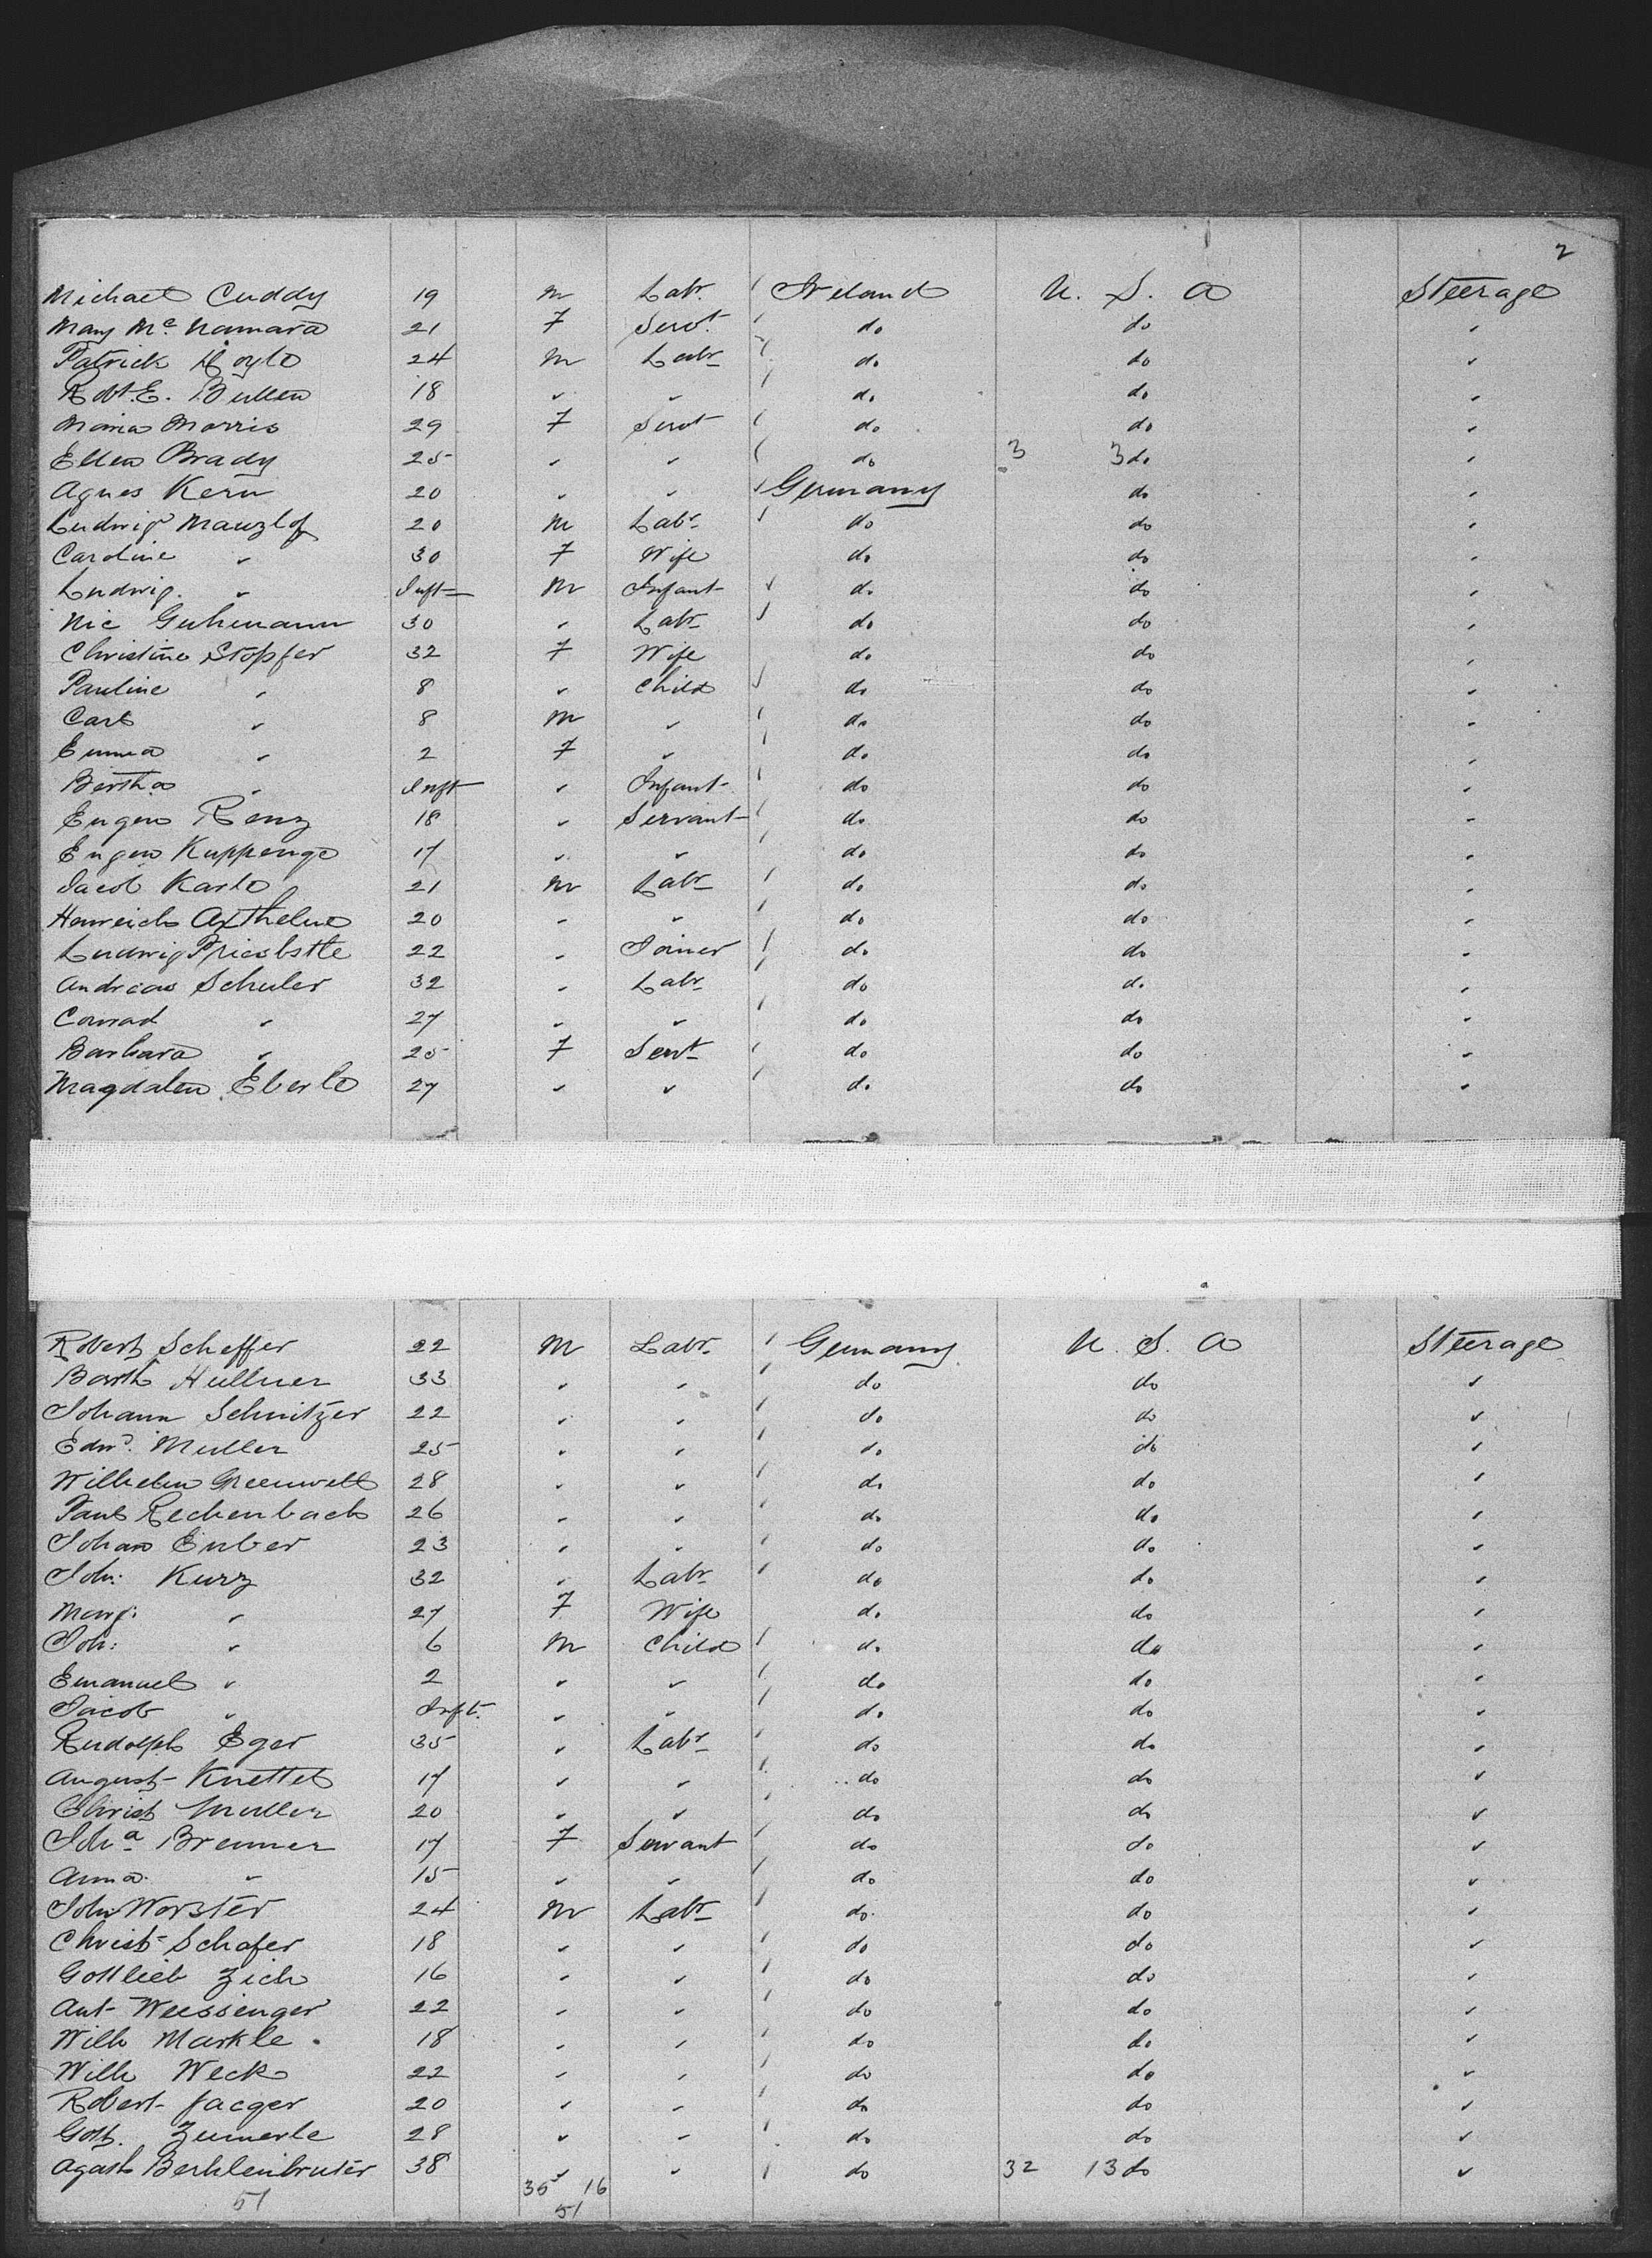 2
Michael Cuddy 19 m Labr. Ireland U. S. A Steerage
Mary Mc. Namara 21 F Servt. do do "
Patrick Hoyle 24 m Labr do do "
Robt. E. Bullen 18 " " do do "
Maria Morris 29 F Servt do do "
Ellen Brady 25 " " do 3 3 do "
Agnes Kern 20 " " Germany do "
Ludwig Manzlof 20 m Labr do do "
Caroline " 30 F Wife do do "
Ludwig. " Inft M Infant do do "
Nic Guhmann 30 " Labr do do "
Christine Stopfer 32 F Wife do do "
Pauline " 8 " Child do do "
Carl " 8 m " do do "
Emma " 2 F " do do "
Bertha " Inft " Infant do do "
Eugen Renz 18 " Servant do do "
Eugen Kuppenge 17 " " do do "
Jacob Karle 21 m Labr do do "
Heinreich Axthelm 20 " " do do "
Ludwig 22 " Joiner do do "
Andreas Schuler 32 " Labr do do "
Conrad " 27 " " do do "
Barbara " 25 F Servt do do "
Magdalen Eberle 27 " " do do "
Robert Scheffer 22 M Labr. Germany U. S. A Steerage
Barth Hullner 33 " " do do "
Johann Schnitzer 22 " " do do "
Edwd. Muller 25 " " do do "
Wilhelm Greenwelt 28 " " do do "
Paul Rechenbach 26 " " do do "
Johan Enber 23 " " do do "
Joh: Kurz 32 " Labr do do "
Marg: " 27 F Wife do do "
Joh: " 6 m Child do do "
Emanuel " 2 " " do do "
Jacob " Inft. " " do do "
Rudolph Eger 35 " Labr do do "
August Knettel 17 " " do do "
Christ Muller 20 " " do do "
Joha Brenner 17 F Servant do do "
Anna " 15 " " do do "
John Worster 24 m Labr do do "
Christ Schafer 18 " " do do "
Gottlieb Zich 16 " " do do "
Ant Weissenger 22 " " do do "
Wilh Markle 18 " " do do "
Wilh Weck 22 " " do do "
Robert Jaeger 20 " " do do "
Gott. Zumerle 28 " " do do "
38 " " do 32 13 do "
35 16
51 51